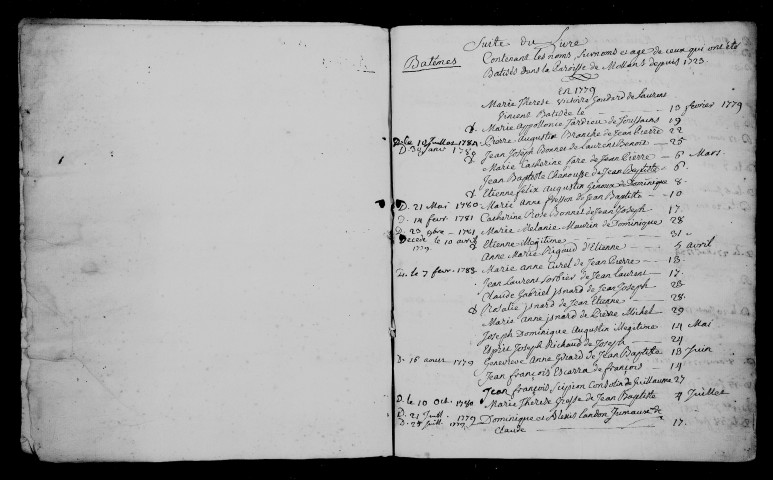 Suite du Livre
Batêmes Contenant les noms, Surnoms et age de ceux qui ont été
Batisés dans la Paroisse de Mollans depuis 1723.
En 1779
Marie Therese Victoire Goudard de Laurens
Vincent Batisée le 13 fevrier 1779
Marie Appollonie Tardieu de Toussains 19
Pierre Augustin Branche de Jean Pierre 22
Jean Joseph Bonnet de Laurent Benoit 25
Marie Catherine fare de Jean Pierre 6 Mars
Jean Baptiste Chanousse de Jean Baptiste 6
Etienne felix Augustin Genoux de Dominique 8
D. 21 Mai 1780 Marie Anne Gresson de Jean Baptiste 10
D. 14 fevr. 1781 Catherine Rose Bonnet de Jean Joseph 17
D. 23 9bre 1781 Marie Melanie Maurin de Dominique 28
Décédé le 10 avril 1779 Etienne illegitime 31
Anne Marie Rigaud d'Etienne 5 avril
D. le 7 fevr. 1783 Marie anne Curel de Jean Pierre 13
Jean Laurent Sorbier de Jean Laurent 17
Claude Gabriel jsnard de Jean Joseph 23
Rosalie jsnard de Jean Etienne 28
Marie Anne jsnard de Pierre Michel 29
Joseph Dominique Augustin illegitime 14 Mai
Esprit Joseph Richaud de Joseph 24
1779 Genevieve Anne Girard de Jean Baptiste 13 Juin
Jean françois Escarra de françois 14
Jean françois Scipion Consolin de Guillaume 27
D. le 10 Oct. 1780 Marie Therese Grosse de Jean Baptiste 4 Juillet
D. 21 Juill. 1779 Dominique et Alexis Landon Jumaux de
D. 24 Juill. 1779 Claude 17